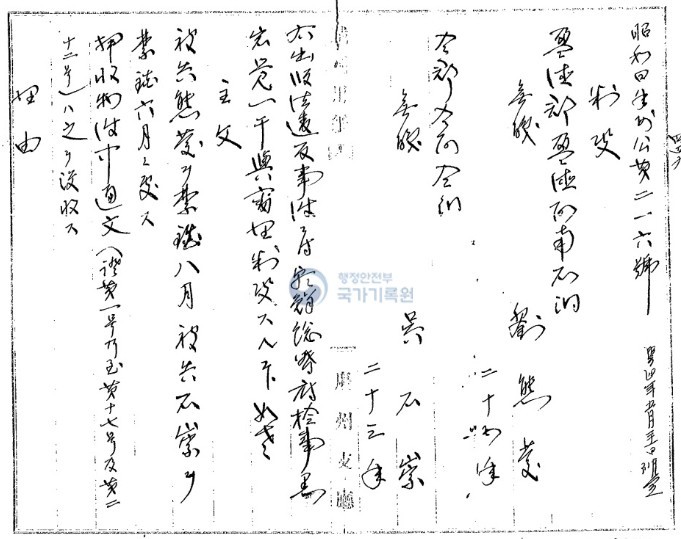 昭和四年刑公第二一六號
判決
盈德郡盈德面南石洞
無職
劉熊慶
二十四年
仝郡仝面仝洞
無職
吳石崇
二十三年
右出版法違反事件ニ付朝鮮總督府檢事
一干與審理判決スル下如左
主文
被告熊慶ヲ禁錮八月被告石崇ヲ
禁錮六月ニ處ス
押收物件中通文(證第一号乃至第十七号及第二
十二号)ハ之ヲ沒收ス
理由
행정안전부
국가기록원
州支廳